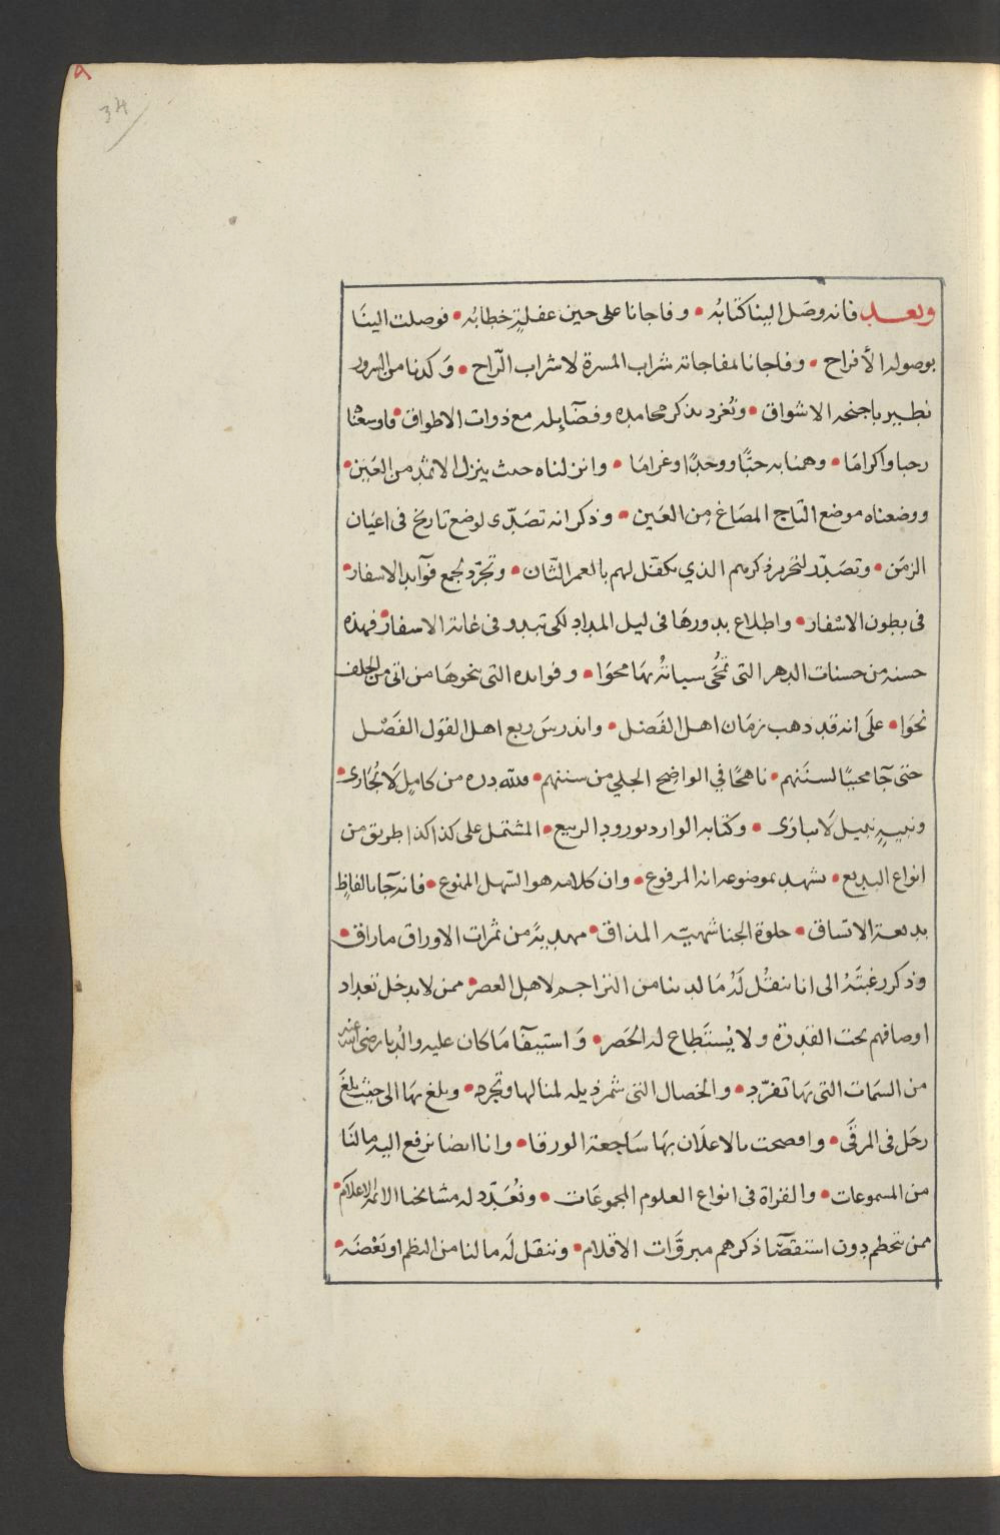 34
وبعد فانه وصل الينا كتابُه • وفاجانا على حين غفلةٍ خطابُه • فوصلت الينَا
بوصوله الأفراح • وفاجانا لمفاجاته شراب المسرة لا شراب الرّاح • وَكدنا من السرور
نطير باجنحه الاشواق • وتُغرد بذكر محامده وفضآيله مع ذوات الاطواق • فاوسعنا
رحبا واكرامًا • وهمنا به حبًّا ووجدًا وغرامًا • وانزلناه حيث ينزل الاثمُد من العَين •
ووضعناه موضع التّاج المصَاغ مِن العَين • وذكر انه تصَدّى لوضع تاريخ فى اعيَان
الزمَن • وتصَدّر لتحرير ذكرهم الذي يكفّل لهم بالعمر الثّان • وتجرّد لجمع فوَآيد الاسفار •
فى بطون الاسْفار • واطلاع بدورهَا فى ليل المداد لكى تبدو فى غاية الاسفار • فهذه
حسنه من حسنات الدهر التى تُمحَى سياتُه بهَا محوَا • وفوايده التى ينحوهَا من اتى من الخلف
نحوَا • علَى انه قد ذهب زمَان اهل الفَضل • واندرسَ ربع اهل القوَل الفَصْل
حتى جآ محييًا لسنَنهم • ناهجًا في الواضح الجلي من سننهم • فلله دره من كامِلٍ لَا يُجَارى •
ونبيهٍ نبيل لَا يبارَى • وكتابه الوارد بورود الربيع • المشتمل على كذا كذا طريق من
انواع البديع • يشهد بموضوعه انه المرفوع • وان كلامه هو السّهل الممنوع • فانه جآ بالفاظٍ
بديعة الاتساق • حلوة الجنا شهيّه المذاق • مهديةً من ثمرات الاوراق ما راق •
وذكر رغبتَهُ الى اننا ننقُل لَهُ مَا لدينا من التراجم لاهل العصر • ممن لا يدخل تعداد
اوصافهم تحت القدرة ولا يُستَطاع له الحَصر • وَاستيفآ مَا كان عليه والدنا رضى الله عنه
من السمَات التى بهَا تفرّد • والخصال التى شمّر ذيله لمنالها وتجرد • وبلغ بهَا الى حيث بلغَ
زحَل فى المرقَى • وافصحت بالاعلَان بهَا سَاجعة الورقا • وانا ايضا نرفع اليه مالنَا
من المسموعات • والقراة فى انواع العلوم المجموعَات • ونُعَدّد له مشايخنا الائمه الاعلام •
ممن يتحطم دون استقصآ ذكرهم مبريَّات الاقلام • وننقل لَه مالنا من النظم او بَعْضَه •